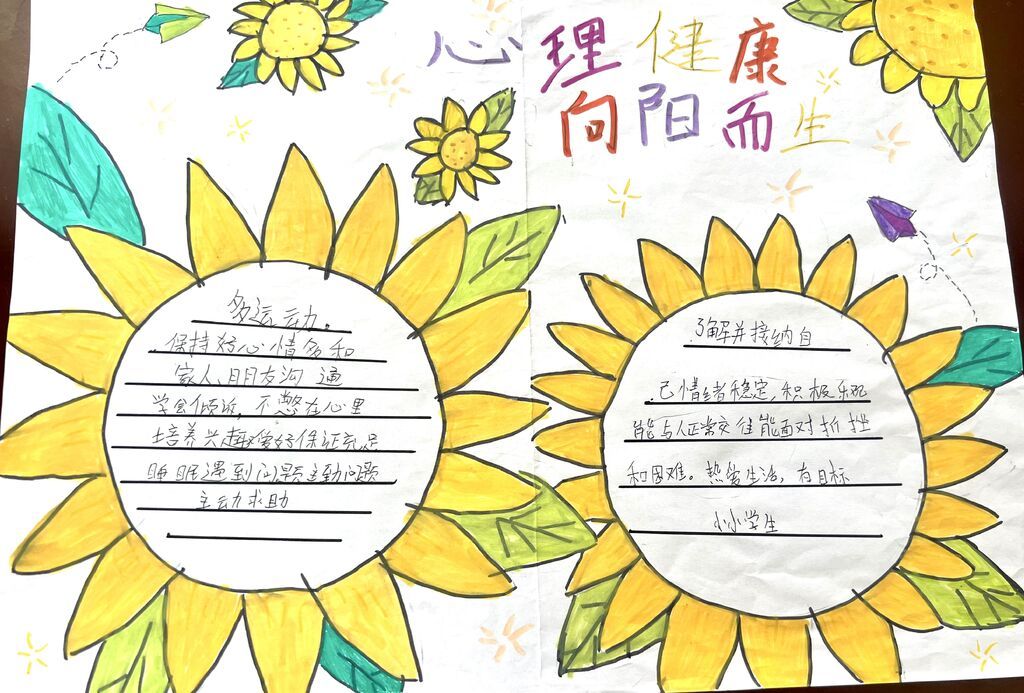 心理健康
向阳而生
多运动.
保持好心情多和
家人、朋友沟通
学会倾诉, 不憋在心里
培养兴趣爱好保证充足
睡眠遇到问题主动问题
主动求助
了解并接纳自
己情绪稳定, 积极乐观
能与人正常交往能面对折挫
和困难。热爱生活, 有目标
小小学生